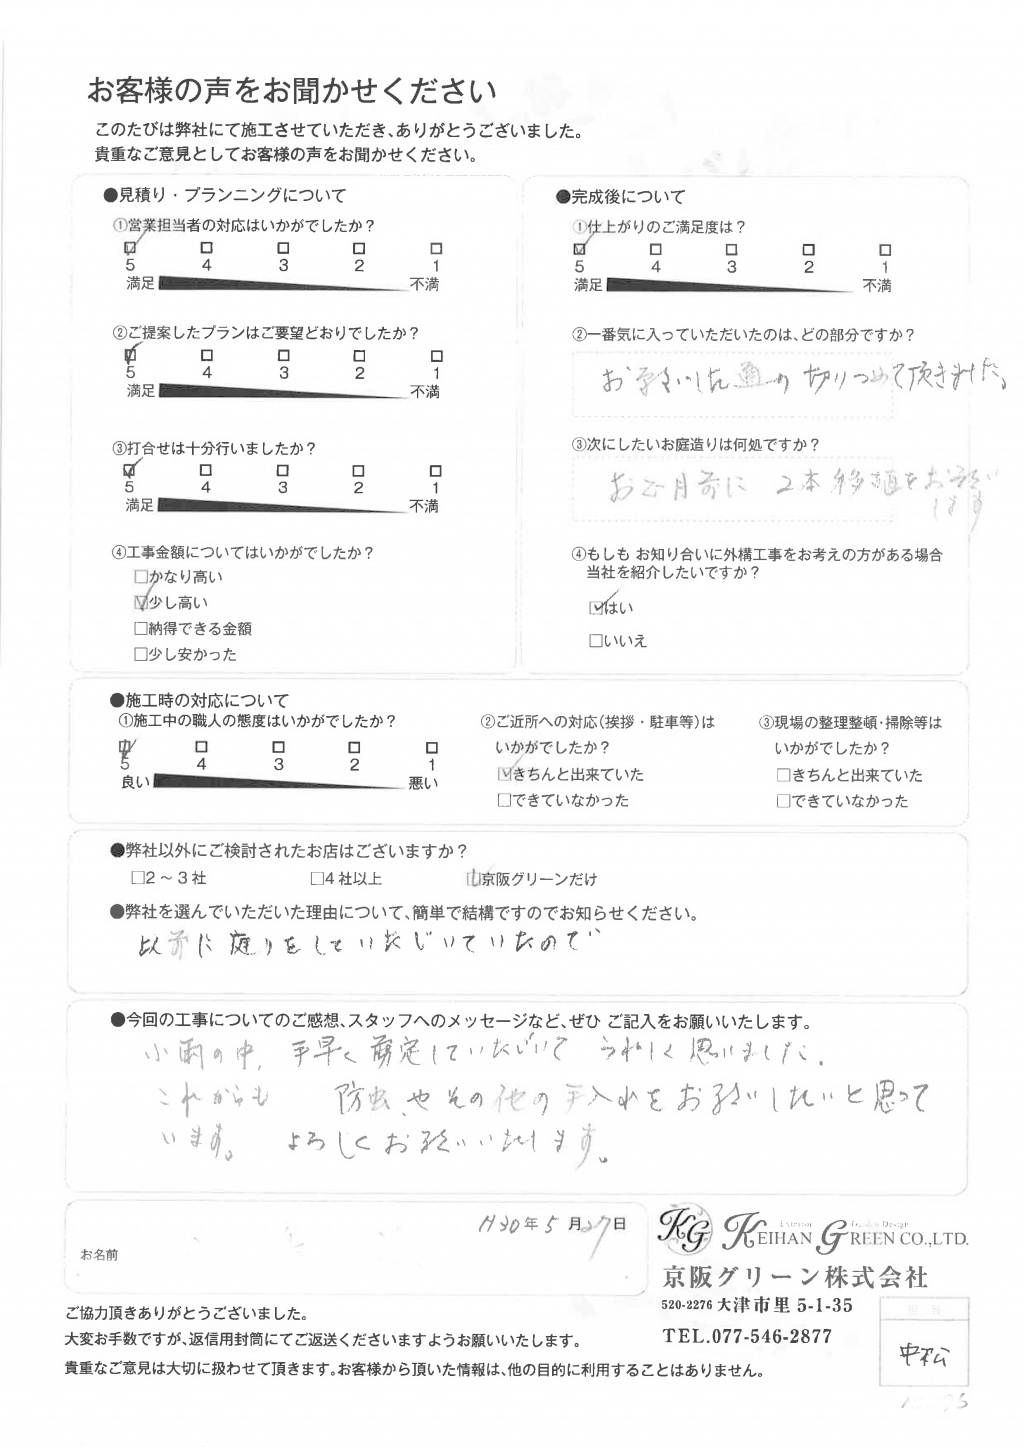 お客様の声をお聞かせください
このたびは弊社にて施工させていただき、ありがとうございました。
貴重なご意見としてお客様の声をお聞かせください。
●見積り・プランニングについて
①営業担当者の対応はいかがでしたか？
☑ □ □ □ □
5 4 3 2 1
満足 不満
②ご提案したプランはご要望どおりでしたか？
☑ □ □ □ □
5 4 3 2 1
満足 不満
③打合せは十分行いましたか？
☑ □ □ □ □
5 4 3 2 1
満足 不満
④工事金額についてはいかがでしたか？
□かなり高い
☑少し高い
□納得できる金額
□少し安かった
●完成後について
①仕上がりのご満足度は？
☑ □ □ □ □
5 4 3 2 1
満足 不満
②一番気に入っていただいたのは、どの部分ですか？
お願いした通り 切りつめて頂きました。
③次にしたいお庭造りは何処ですか？
お正月前に 2本移植をお願い
します
④もしも お知り合いに外構工事をお考えの方がある場合
当社を紹介したいですか？
☑はい
□いいえ
●施工時の対応について
①施工中の職人の態度はいかがでしたか？
☑ □ □ □ □
5 4 3 2 1
良い 悪い
②ご近所への対応（挨拶・駐車等）は
いかがでしたか？
☑きちんと出来ていた
□できていなかった
③現場の整理整頓・掃除等は
いかがでしたか？
□きちんと出来ていた
□できていなかった
●弊社以外にご検討されたお店はございますか？
□2～3社 □4社以上 ☑京阪グリーンだけ
●弊社を選んでいただいた理由について、簡単で結構ですのでお知らせください。
以前に庭りをしていただいていたので
●今回の工事についてのご感想、スタッフへのメッセージなど、ぜひ ご記入をお願いいたします。
小雨の中、手早く剪定していただいて うれしく思いました。
これからも 防虫やその他の手入れをお願いしたいと思って
います。 よろしくお願いいたします。
H30年5月27日
お名前
KG Exterior Garden Design
KEIHAN GREEN CO.,LTD.
京阪グリーン株式会社
520-2276 大津市里 5-1-35
TEL.077-546-2877
ご協力頂きありがとうございました。
大変お手数ですが、返信用封筒にてご返送くださいますようお願いいたします。
貴重なご意見は大切に扱わせて頂きます。お客様から頂いた情報は、他の目的に利用することはありません。
担当
中松